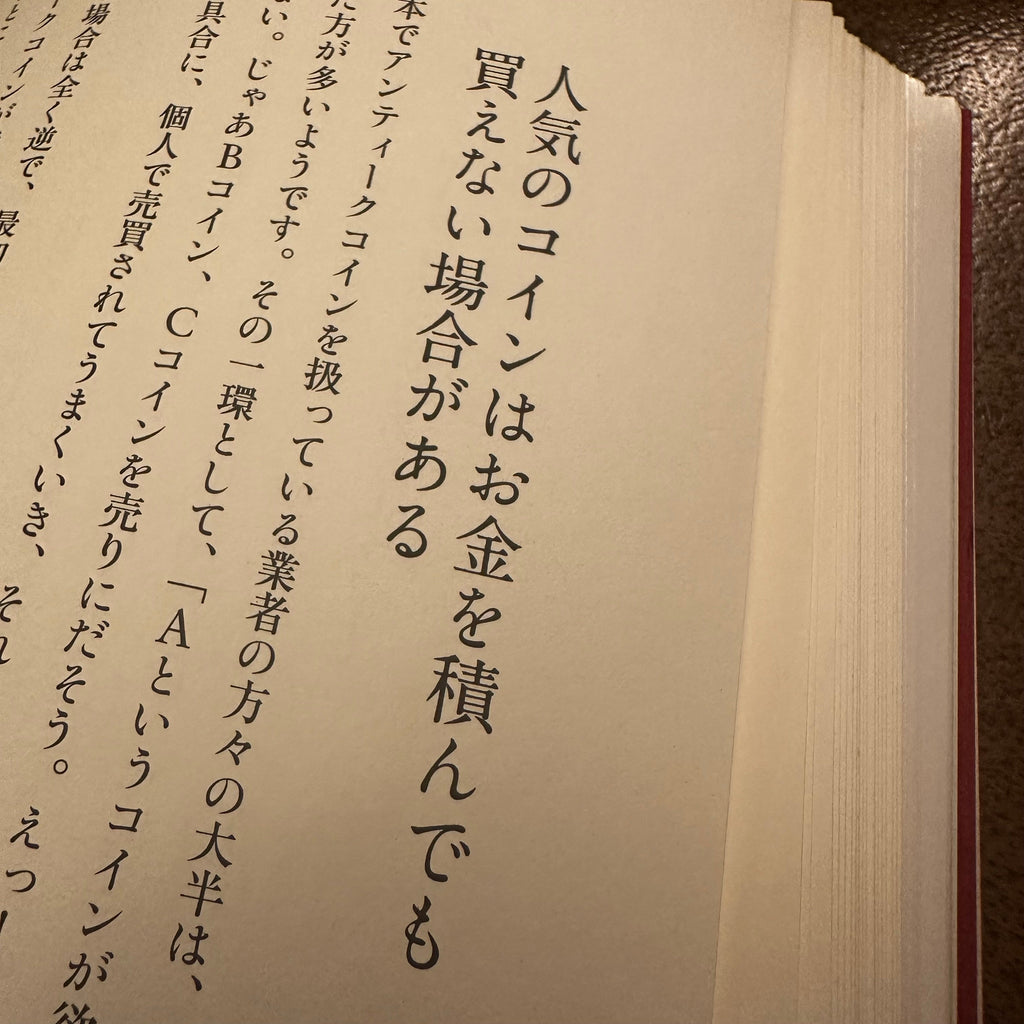 人気のコインはお金を積んでも
買えない場合がある
本でアンティークコインを扱っている業者の方々の大半は、
た方が多いようです。その一環として、「Aというコインが
い。じゃあBコイン、Cコインを売りにだそう。えっ
具合に、個人で売買されてうまくいき、それ
場合は全く逆で、
クコインが